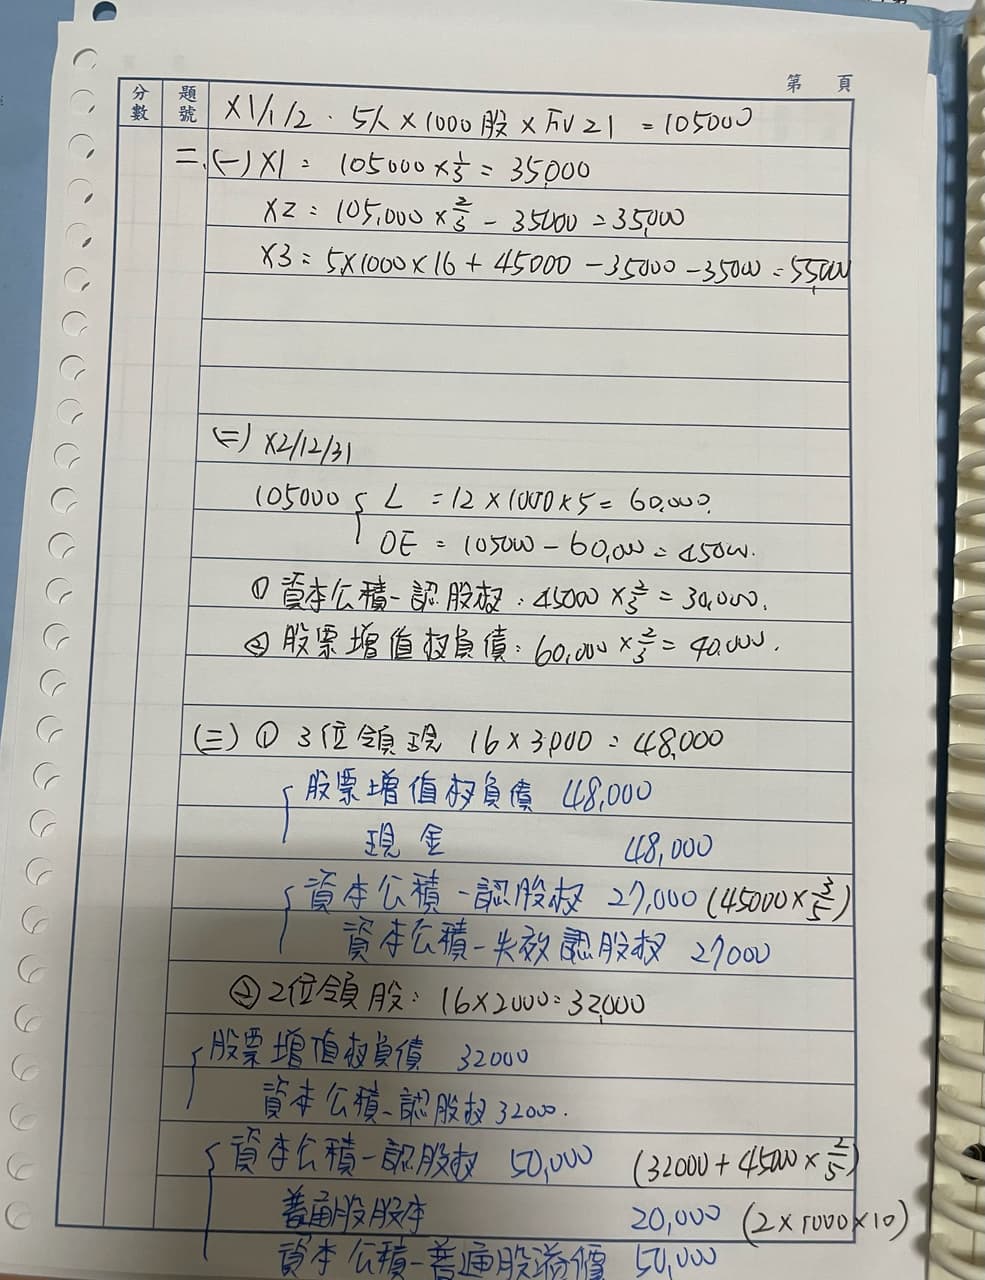 第 頁
分數 題號 X1/1/2 . 5人×1000股×FV 21 = 105000
二、(一) X1 = 105000 × 1/3 = 35,000
X2 = 105,000 × 2/3 - 35000 = 35,000
X3 = 5×1000×16 + 45000 - 35000 - 35000 = 55,000
(二) X2/12/31
105000 { L = 12×1000×5 = 60,000.
OE = 105000 - 60,000 = 45000.
① 資本公積-認股权 : 45000 × 2/3 = 30,000.
② 股票增值权負債 : 60,000 × 2/3 = 40,000.
(三) ① 3位領現 16×3,000 = 48,000
股票增值权負債 48,000
現金 48,000
資本公積-認股权 27,000 (45000×3/5)
資本公積-失效認股权 27000
② 2位領股 : 16×2000 = 32,000
股票增值权負債 32000
資本公積-認股权 32000.
資本公積-認股权 50,000 (32000+45000×2/5)
普通股股本 20,000 (2×1000×10)
資本公積-普通股溢價 50,000